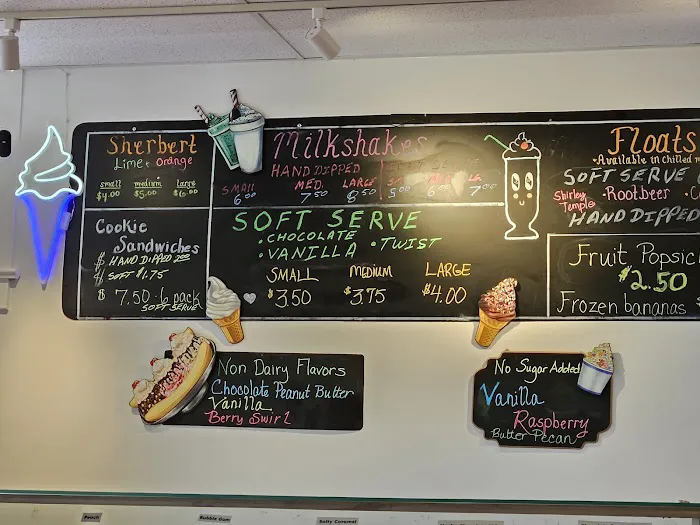 Sherbert
Lime & Orange
small medium large
$4.00 $5.00 $6.00
Cookie
Sandwiches
HAND DIPPED 2.00
SOFT $1.75
$ 7.50 - 6 pack
SOFT SERVE
Milkshakes
HAND DIPPED
SMALL MED. LARGE
6.00 7.50 8.50 5.00 6.00 7.00
SOFT SERVE
• CHOCOLATE
• VANILLA • TWIST
SMALL MEDIUM LARGE
$3.50 $3.75 $4.00
Floats
• Available in chilled
SOFT SERVE
Shirley Temple • Rootbeer
HAND DIPPED
Fruit Popsic
$2.50
Frozen bananas
Non Dairy Flavors
Chocolate Peanut Butter
Vanilla
Berry Swirl
No Sugar Added
Vanilla
Raspberry
Butter Pecan
Peach
Bubble Gum
Salty Caramel